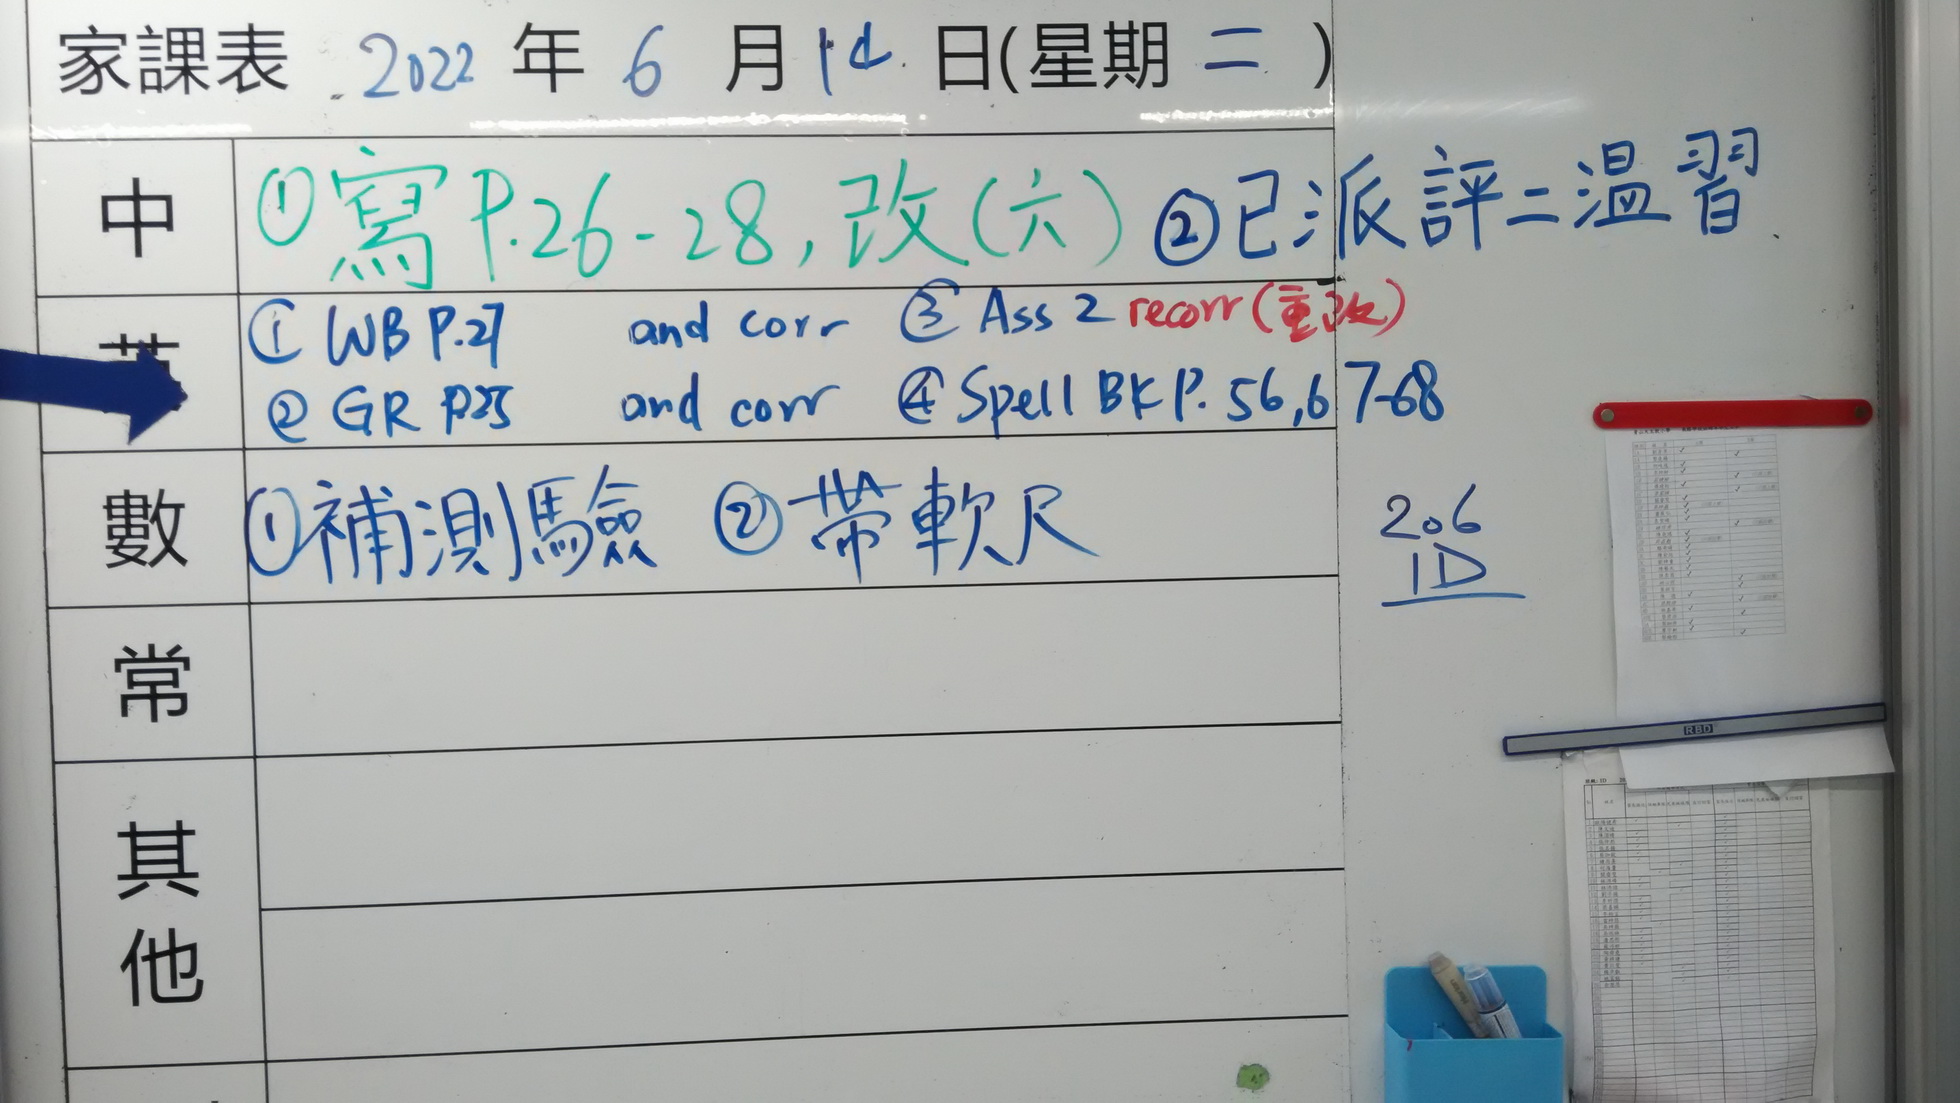 家課表 2022 年 6 月 14 日(星期 二 )
中 ①寫P.26-28,改(六) ②已派評二溫習
英 ① WB P.27 and corr ③ Ass 2 recorr (重改)
② GR P.25 and corr ④ Spell BK P. 56,67-68
數 ①補測驗 ②帶軟尺
206
1D
常
其他
RBD